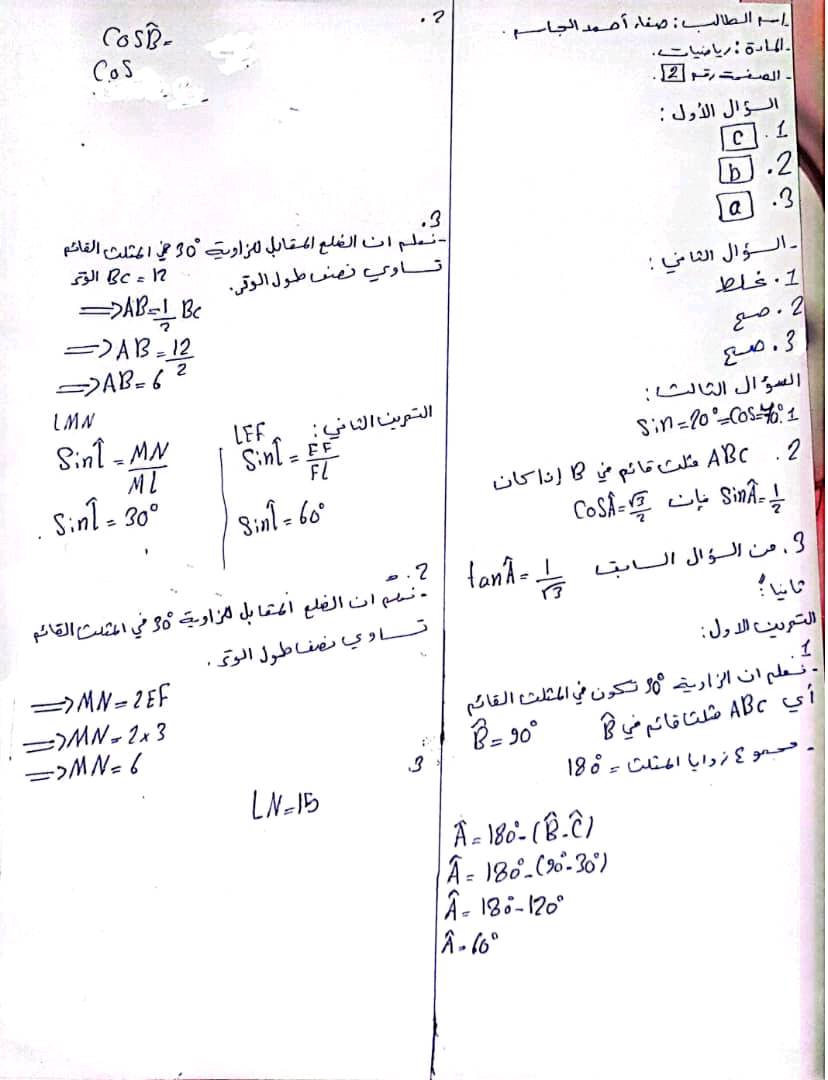 اسم الطالب: صفاء أحمد الجاسم.
- المادة: رياضيات.
- الصفحة رقم 2.
السؤال الأول:
1. c
2. b
3. a
- السؤال الثاني:
1. غلط
2. صح
3. صح
السؤال الثالث:
1. Sin=20°=Cos=70°
2. ABC مثلث قائم في B إذا كان
SinÂ=1/2 فإن CosÂ=√3/2
3. من السؤال السابق tanÂ=1/√3
ثانياً:
التمرين الاول:
1.
- نعلم ان الزاوية 90° تكون في المثلث القائم
أي ABC مثلث قائم في B̂ B̂=90°
- مجموع زوايا المثلث = 180°
Â=180°-(B̂-Ĉ)
Â=180°-(90°-30°)
Â=180°-120°
Â=60°
2.
CosB̂=
Cos
3.
- نعلم ان الضلع المقابل للزاوية 30° في المثلث القائم
تساوي نصف طول الوتر. BC=12 الوتر
⟹AB=1/2 BC
⟹AB=12/2
⟹AB=6
التمرين الثاني:
LEF
SinL̂=EF/FL
SinL̂=60°
LMN
SinL̂=MN/ML
SinL̂=30°
2.
- نعلم ان الضلع المقابل للزاوية 30° في المثلث القائم
تساوي نصف طول الوتر.
⟹MN=2EF
⟹MN=2×3
⟹MN=6
3.
LN=15